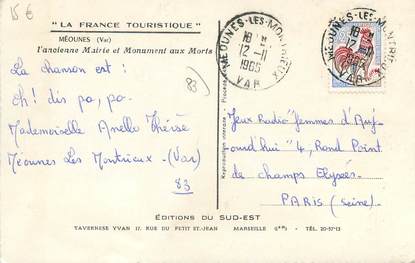 15 €
"LA FRANCE TOURISTIQUE"
MÉOUNES (Var)
l'ancienne Mairie et Monument aux Morts
La chanson est :
Oh! dis pa, pa.
Mademoiselle Anelle Thérèse
Méounes Les Montrieux - (Var)
83
83
MÉOUNES-LES-MONTRIEUX
18 H
12-11
1965
VAR
MÉOUNES-LES-MONTRIEUX
18 H
12-11
VAR
Reproduction interdite - Procédé
Jeux Radio "femmes d'Auj-
ourd'hui" 4, Rond Point
de champs Elysées
PARIS (Seine).
ÉDITIONS DU SUD-EST
TAVERNESE YVAN 17, RUE DU PETIT ST-JEAN MARSEILLE TÉL. 20-57-13